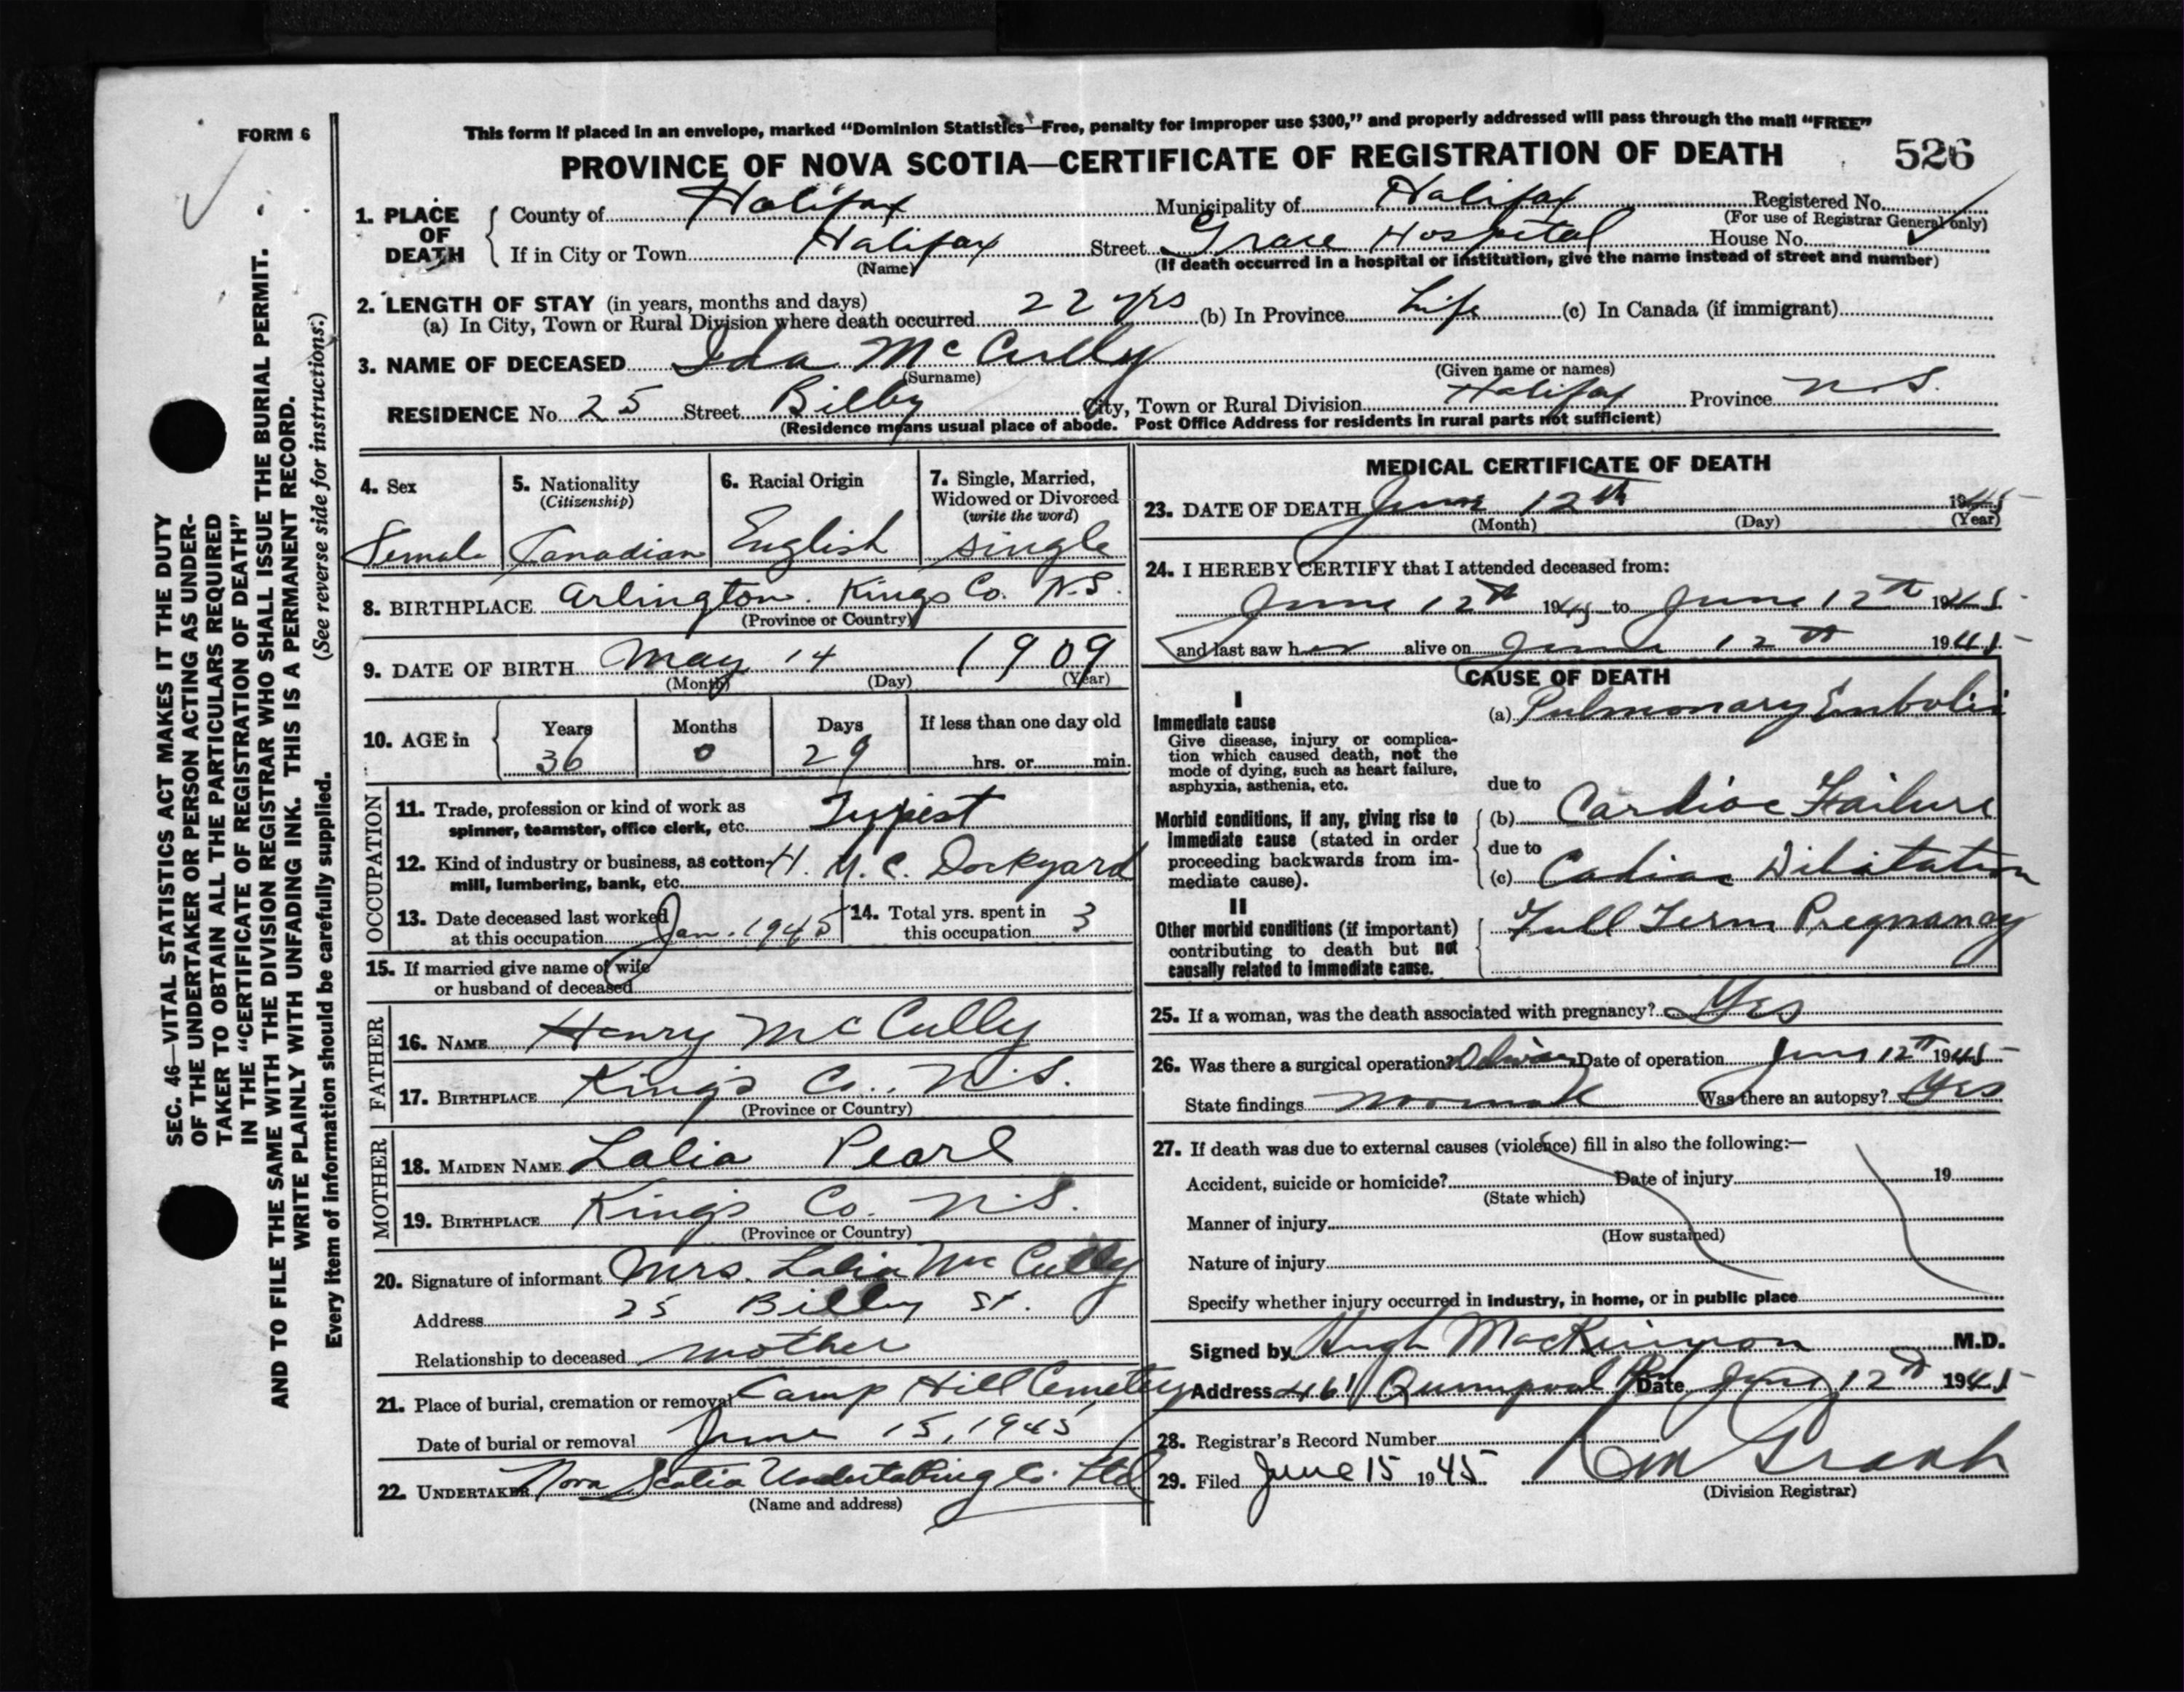 FORM 6
This form if placed in an envelope, marked “Dominion Statistics—Free, penalty for improper use $300,” and properly addressed will pass through the mail “FREE”
PROVINCE OF NOVA SCOTIA—CERTIFICATE OF REGISTRATION OF DEATH 526
1. PLACE OF DEATH { County of Halifax Municipality of Halifax Registered No.
(For use of Registrar General only)
If in City or Town Halifax Street Grace Hospital House No.
(Name) (If death occurred in a hospital or institution, give the name instead of street and number)
2. LENGTH OF STAY (in years, months and days)
(a) In City, Town or Rural Division where death occurred 22 yrs (b) In Province Life (c) In Canada (if immigrant)
3. NAME OF DECEASED Ida McCully
(Surname) (Given name or names)
RESIDENCE No. 25 Street Bilby City, Town or Rural Division Halifax Province N.S.
(Residence means usual place of abode. Post Office Address for residents in rural parts not sufficient)
4. Sex
Female
5. Nationality
(Citizenship)
Canadian
6. Racial Origin
English
7. Single, Married,
Widowed or Divorced
(write the word)
single
8. BIRTHPLACE Arlington. Kings Co. N.S.
(Province or Country)
9. DATE OF BIRTH May 14 1909
(Month) (Day) (Year)
10. AGE in { Years Months Days If less than one day old
36 0 29 hrs. or min.
OCCUPATION
11. Trade, profession or kind of work as
spinner, teamster, office clerk, etc. Typist
12. Kind of industry or business, as cotton-
mill, lumbering, bank, etc. H. M. C. Dockyard
13. Date deceased last worked
at this occupation Jan. 1945
14. Total yrs. spent in
this occupation 3
15. If married give name of wife
or husband of deceased
FATHER
16. NAME Henry McCully
17. BIRTHPLACE King's Co. N.S.
(Province or Country)
MOTHER
18. MAIDEN NAME Lalia Pearl
19. BIRTHPLACE King's Co. N.S.
(Province or Country)
20. Signature of informant Mrs. Lalia McCully
Address 25 Bilby St.
Relationship to deceased mother
21. Place of burial, cremation or removal Camp Hill Cemetery
Date of burial or removal June 15, 1945
22. UNDERTAKER Nova Scotia Undertaking Co. Ltd
(Name and address)
MEDICAL CERTIFICATE OF DEATH
23. DATE OF DEATH June 12th 1945
(Month) (Day) (Year)
24. I HEREBY CERTIFY that I attended deceased from:
June 12th 1945 to June 12th 1945
and last saw her alive on June 12th 1945
CAUSE OF DEATH
I
Immediate cause
Give disease, injury or complica-
tion which caused death, not the
mode of dying, such as heart failure,
asphyxia, asthenia, etc.
(a) Pulmonary Emboli
due to
Morbid conditions, if any, giving rise to
immediate cause (stated in order
proceeding backwards from im-
mediate cause).
(b) Cardiac Failure
due to
(c) Cadiac Dilitation
II
Other morbid conditions (if important)
contributing to death but not
causally related to immediate cause.
Full Term Pregnancy
25. If a woman, was the death associated with pregnancy? Yes
26. Was there a surgical operation? Date of operation June 12th 1945
State findings Was there an autopsy? Yes
27. If death was due to external causes (violence) fill in also the following:—
Accident, suicide or homicide? Date of injury 19
(State which)
Manner of injury
(How sustained)
Nature of injury
Specify whether injury occurred in industry, in home, or in public place
Signed by Hugh MacKinnon M.D.
Address 461 Quinpool Rd Date June 12th 1945
28. Registrar's Record Number
29. Filed June 15 1945
(Division Registrar)
SEC. 46—VITAL STATISTICS ACT MAKES IT THE DUTY
OF THE UNDERTAKER OR PERSON ACTING AS UNDER-
TAKER TO OBTAIN ALL THE PARTICULARS REQUIRED
IN THE “CERTIFICATE OF REGISTRATION OF DEATH”
AND TO FILE THE SAME WITH THE DIVISION REGISTRAR WHO SHALL ISSUE THE BURIAL PERMIT.
WRITE PLAINLY WITH UNFADING INK. THIS IS A PERMANENT RECORD.
(See reverse side for instructions.)
Every item of information should be carefully supplied.